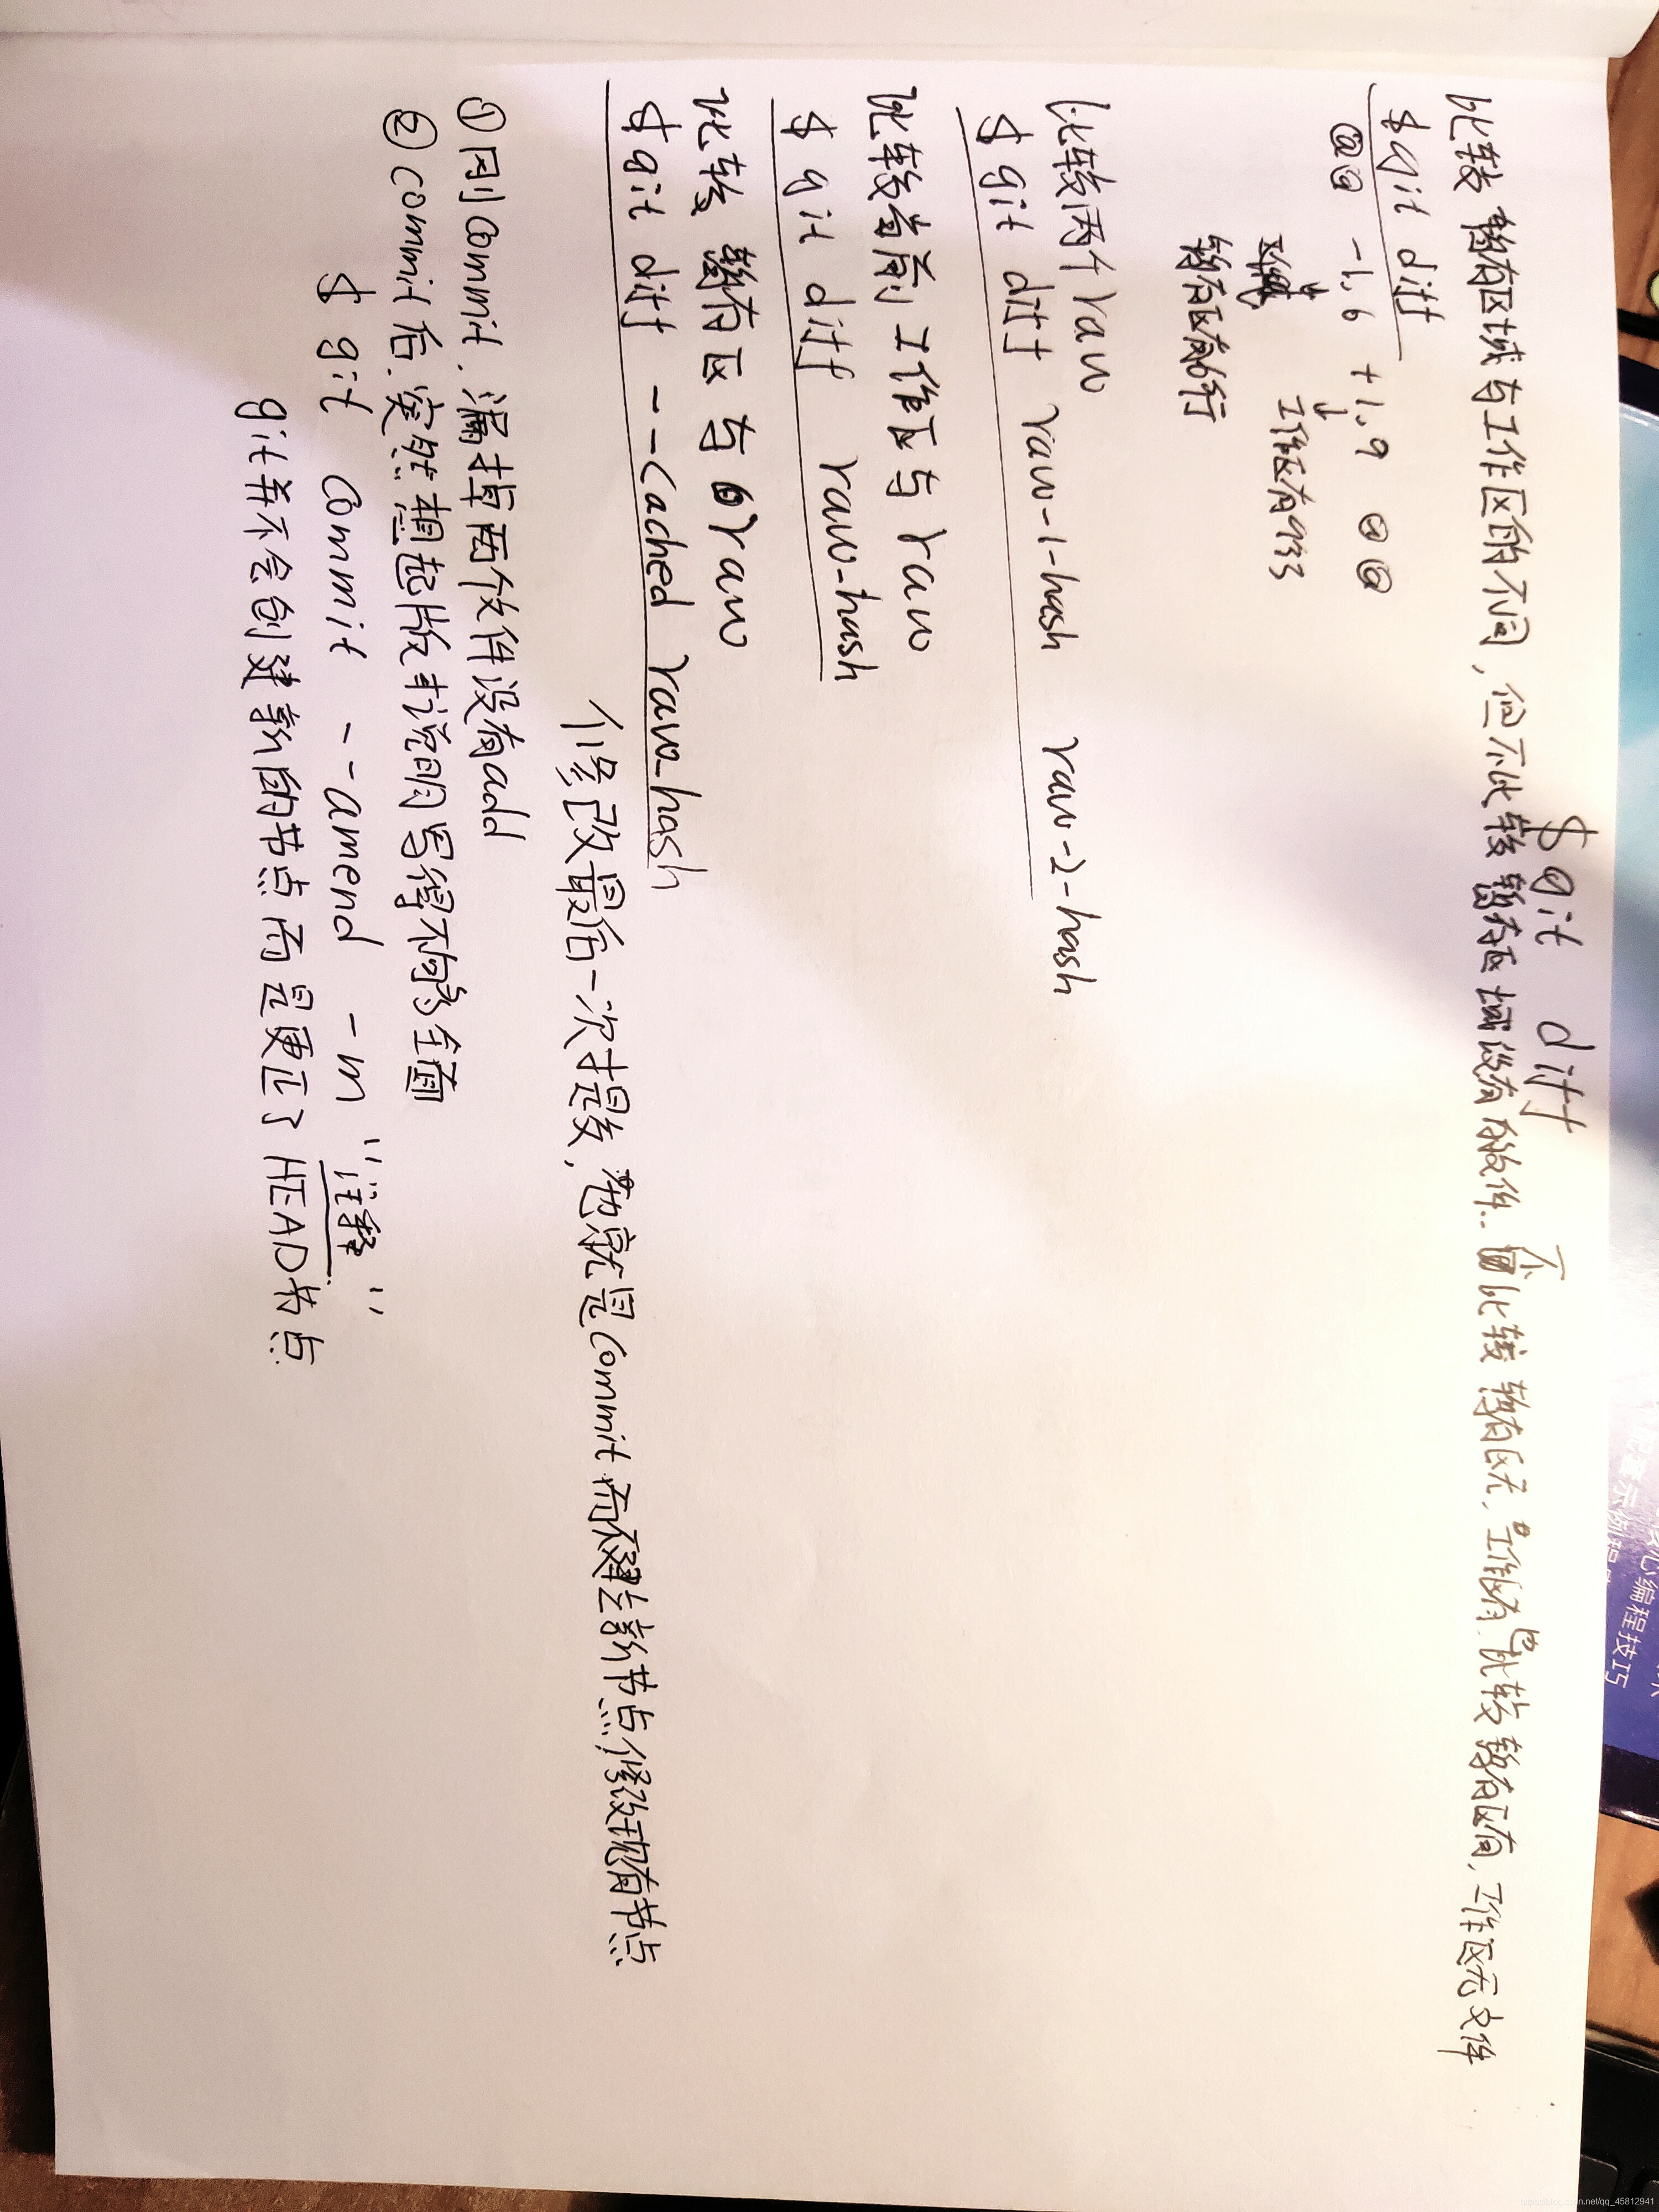 $ git diff
比较暂存区域与工作区的不同,但不比较暂存区域没有的文件.. 不比较暂存区无,工作区有,也比较暂存区有,工作区无文件
$ git diff
@@ -1,6 +1,9 @@
↓ ↓
工作区有9行
暂存区有6行
比较两个raw
$ git diff raw-1-hash raw-2-hash
比较当前工作区与raw
$ git diff raw-hash
比较暂存区与raw
$ git diff --cached raw-hash
修改最后一次提交,也就是commit而不建立新节点,修改现有节点
①刚commit,漏掉两个文件没有add
②commit后,突然想起版本说明写得不够全面
$ git commit --amend -m "注释"
git并不会创建新的节点而是更正了HEAD节点
心编程技巧
示例
net/qq_45812941